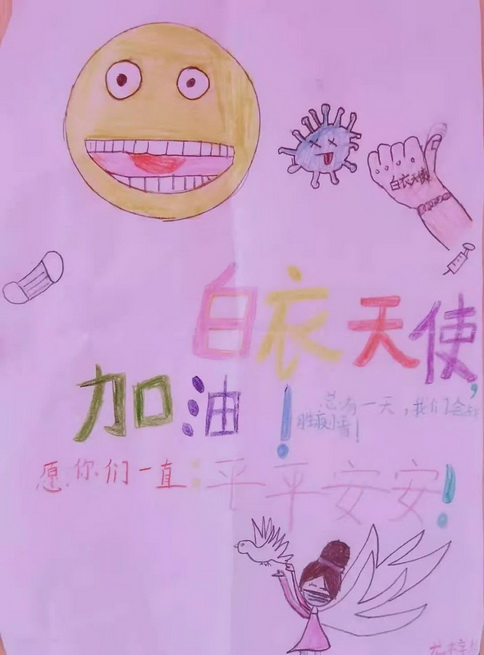 白衣天使
白衣天使,
加油!
总有一天,我们会打
胜病毒!
愿你们一直:平平安安!